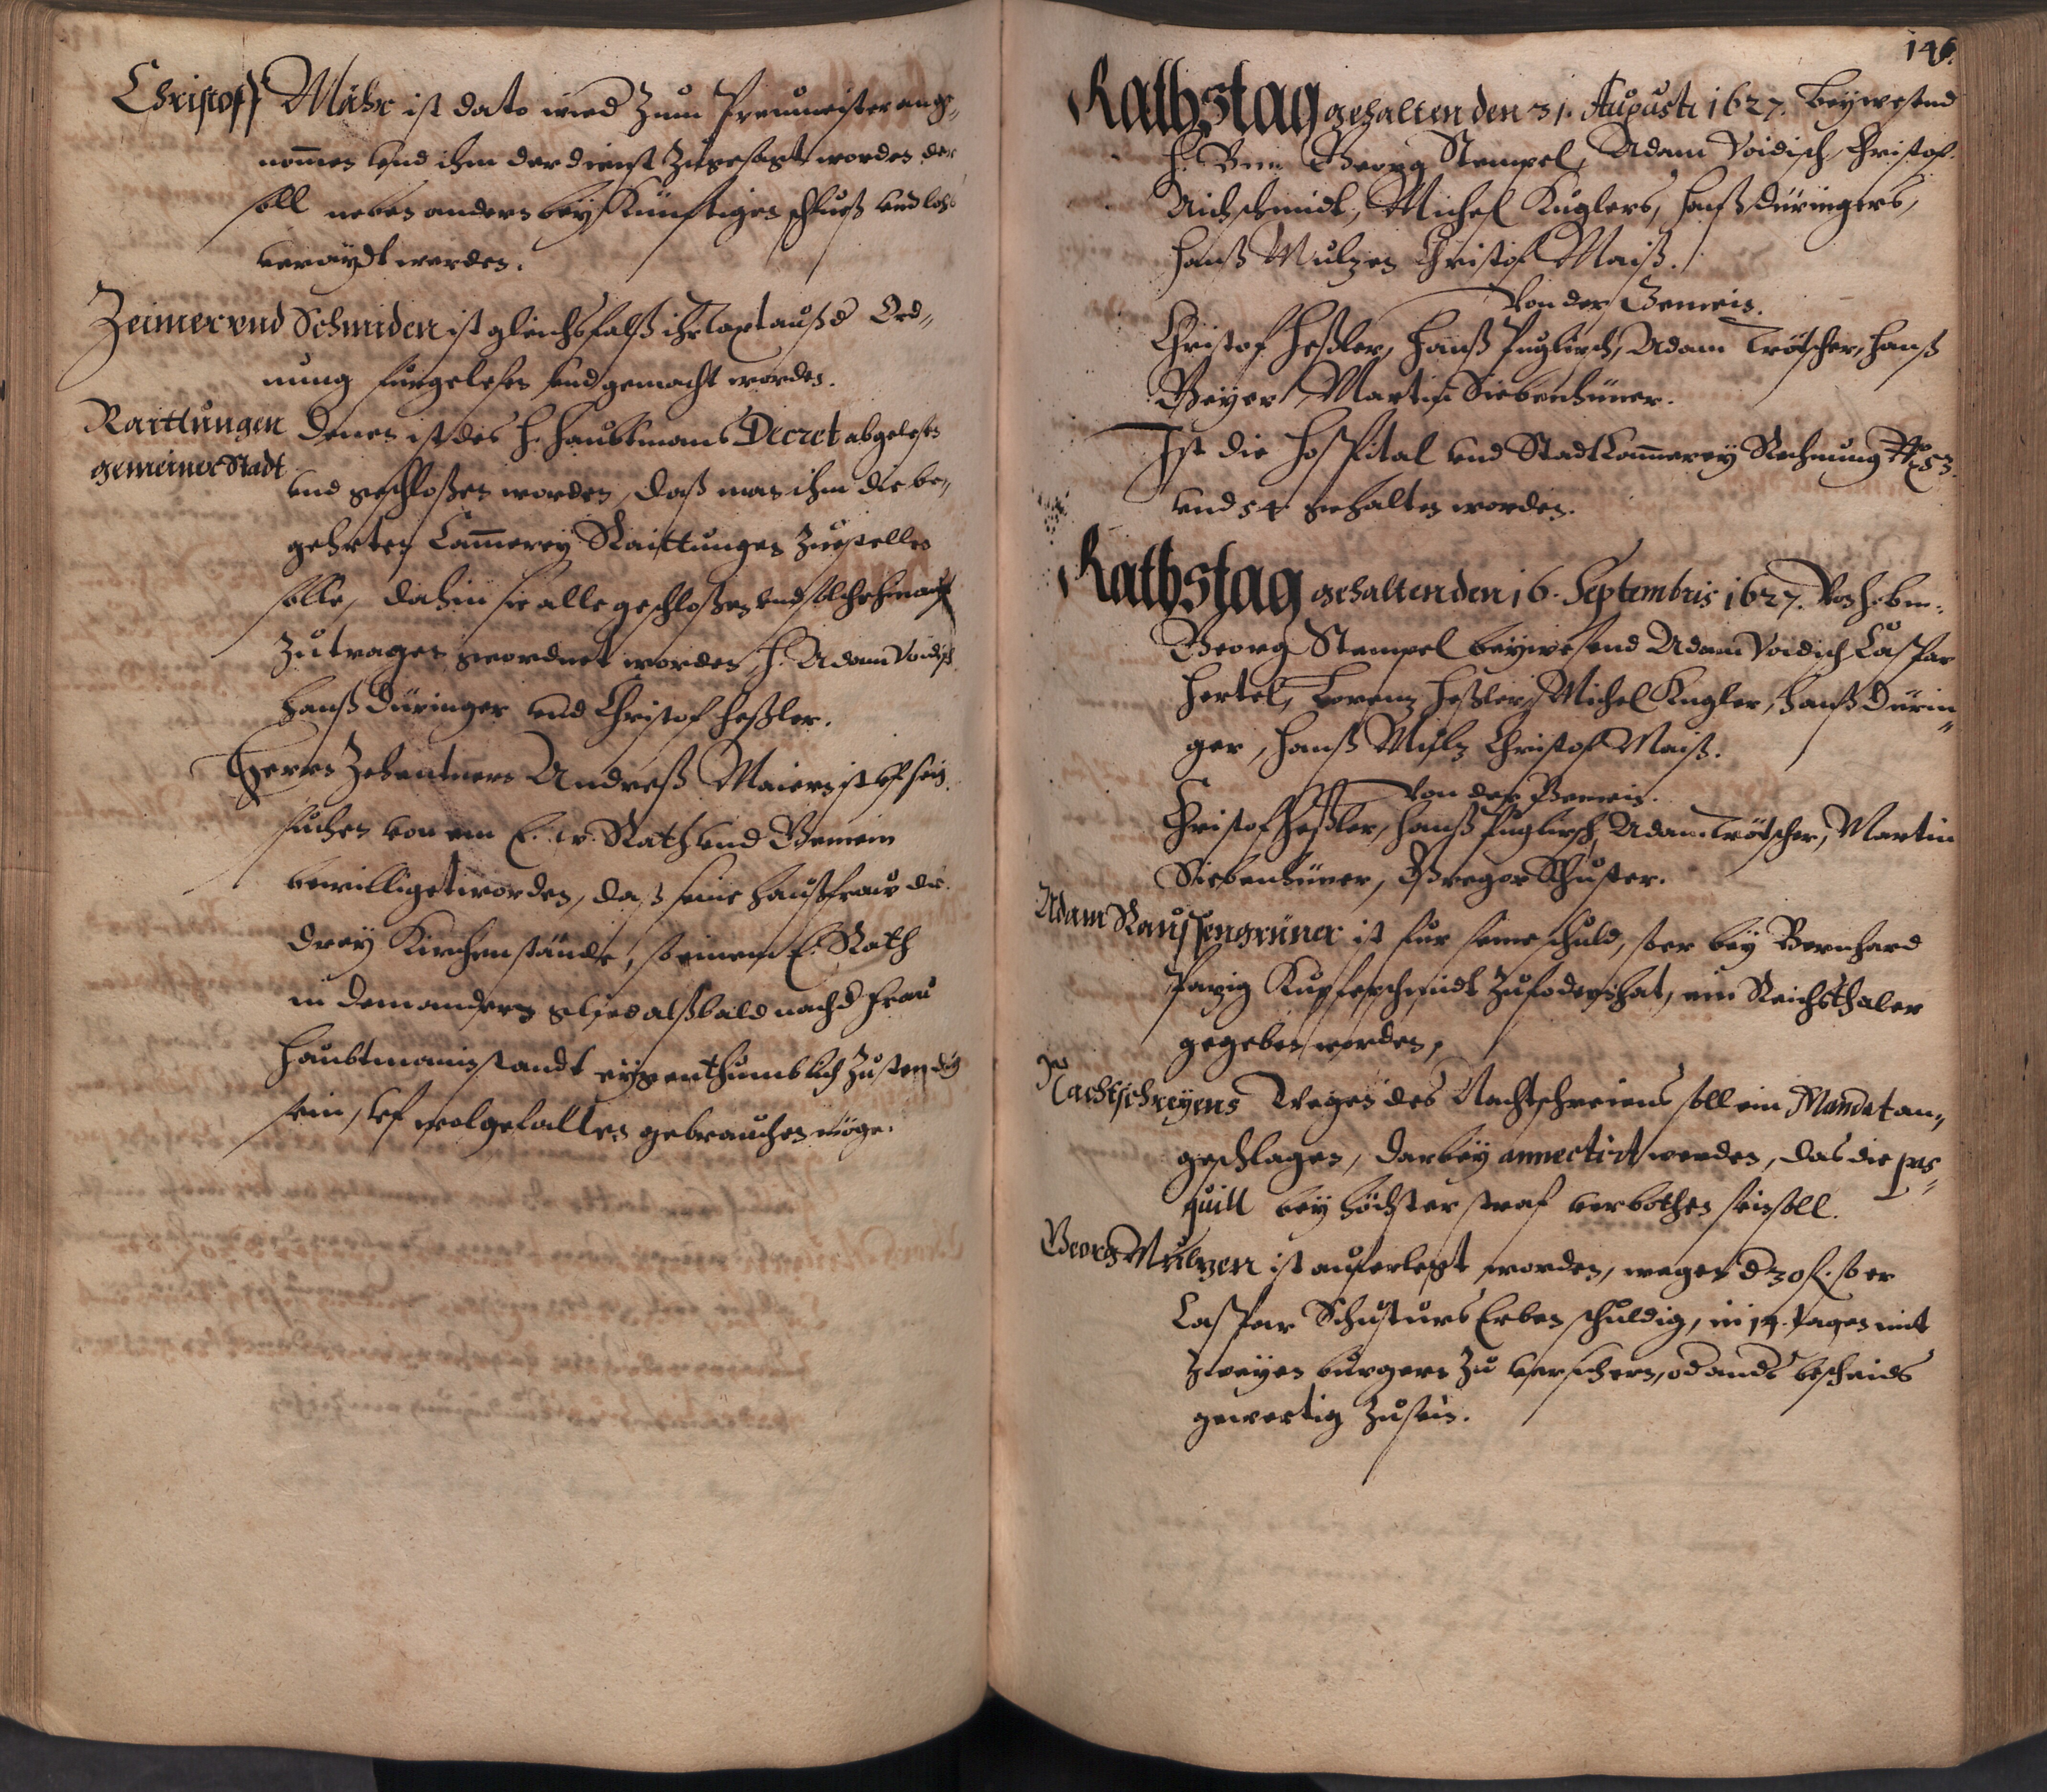 Christoff Mähr ist dato wied zum Preumeister ange,,
nommen vnd ihm der dienst zugesagt worden der
soll neben andern bey Künftigen schluß vnd loß
veraydt werden.
Zeimer vnd Schmiden ist gleichsfalß ihr Taxt auß d Ord,,
nung fürgelesen vnd gemacht worden.
Raittungen
gemeiner Stadt
Denen ist des H. Haubtmans Decret abgelesen
vnd geschloßen worden, daß man ihm die be,,
gehrten Cammerey Raittungen zustellen
solle, dahin sie alle geschloßen vnd solche hinauf
zutragen geordnet worden, H. Adam Voidisch
Hanß Düringer vnd Christof Heßler.
Herrn Zehentners Andreß Maiern ist vf sein
suchen von em E. w. Rath vnd Gemein
bewilliget worden, daß seine haußfraw die
drey Kirchenstände, so einem E. Rath
in dem andern glied alßbald nach d Frau
Haubtmanin standt eygenthumblich zustendig
sein, vf wolgefallen gebrauchen möge.
146.
Rathstag gehalten den 31. Augusti 1627. Beywesend
H. Bm. Georg Stempel, Adam Voidisch, Christof
Aichschmidt, Michel Kuglers, Hanß Düringers,
Hanß Mulzen Christof Maiß.
Von der Gemein.
Christof Heßler, Hanß Puglirsch, Adam Trötscher, Hanß
Beyer Martin Siebenhüner.
Ist die Hospital vnd Stadt Cammerey Rechnung 53
vnd 54 gehalten worden.
Rathstag gehalten den 16. Septembris 1627. Von H. Bm.
Georg Stempel beywesend Adam Voidisch Caspar
Hertel, Lorenz Heßler, Michel Kugler, Hanß Dürin,,
ger, Hanß Mülz Christof Maiß.
Von der Gemein.
Christof Heßler, Hanß Puglirsch, Adam Trötscher, Martin
Siebenhüner, Gregor Schuster.
Adam Raussengrüner ist für seine schuld, so er bey Bernhard
Kupferschmidt zufodern hat, ein Reichsthaler
gegeben worden,
Nachtschreyens Wegen des Nachtschreiens soll ein Mandat an,,
geschlagen, darbey annectirt werden, das die pas,,
quill bey höchster straf verbothen sein soll.
Georg Mulzen ist auferlegt worden, wegen d 30 fl. so er
Caspar Schusturs Erben schuldig, in 14. tagen mit
zweyen burgern zu versichern, od ands bescheids
gewertig zusein.